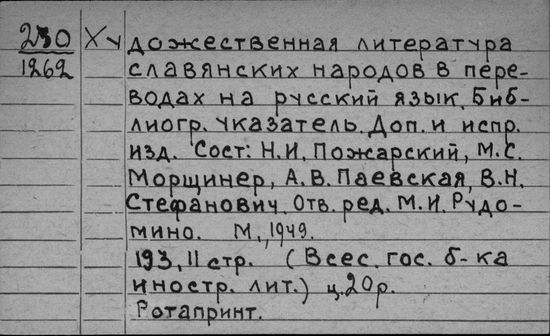 230 Художественная литература
1262 славянских народов в пере-
водах на русский язык. Биб-
лиогр. указатель. Доп. и испр.
изд. Сост: Н.И. Пожарский, М.С.
Морщинер, А.В. Паевская, В.Н.
Стефанович. Отв. ред. М.И. Рудо-
мино. М., 1949.
193, 11 стр. (Всес. гос. б-ка
иностр. лит.) ц. 20 р.
Ротапринт.